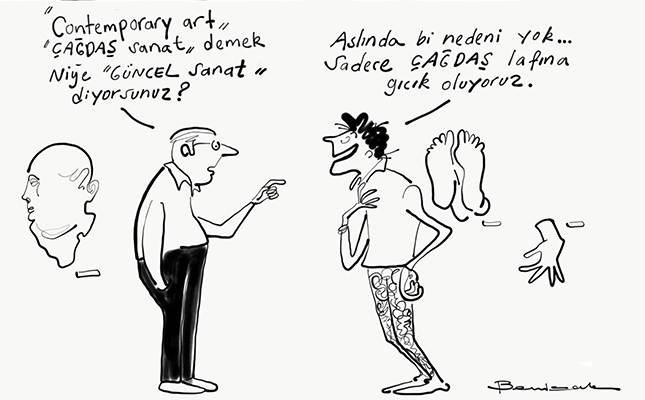 "Contemporary art"
"ÇAĞDAŞ sanat" demek
Niye "GÜNCEL sanat"
diyorsunuz?
Aslında bi nedeni yok...
Sadece ÇAĞDAŞ lafına
gıcık oluyoruz.